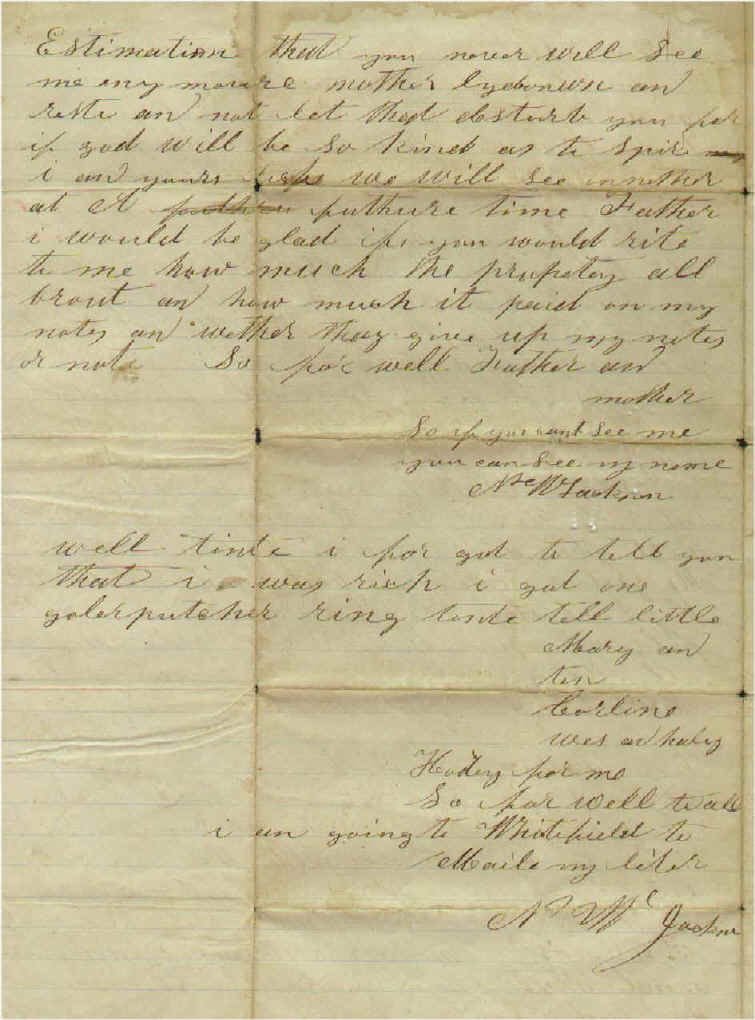 Estimation that you never will See
me eny moure mother lydown an
reste an not let that desturb you for
if god will be so kind as to Spir
i and yours we will see
at A puthure time Father
i would be glad if you would rite
to me how much the propetey all
brout an how much it paid on my
notes an wether thay give up my notes
or note So for well Father an
mother
So if you cant See me
you can See my name
N W Jackson
well tinte i for got to tell you
that i was rich i got one
ring tinte tell little
Mary an
ten
Corline
was an baby
for me
So for well to all
i am going to Whitefield to
Maile my liter
N Mc Jackson